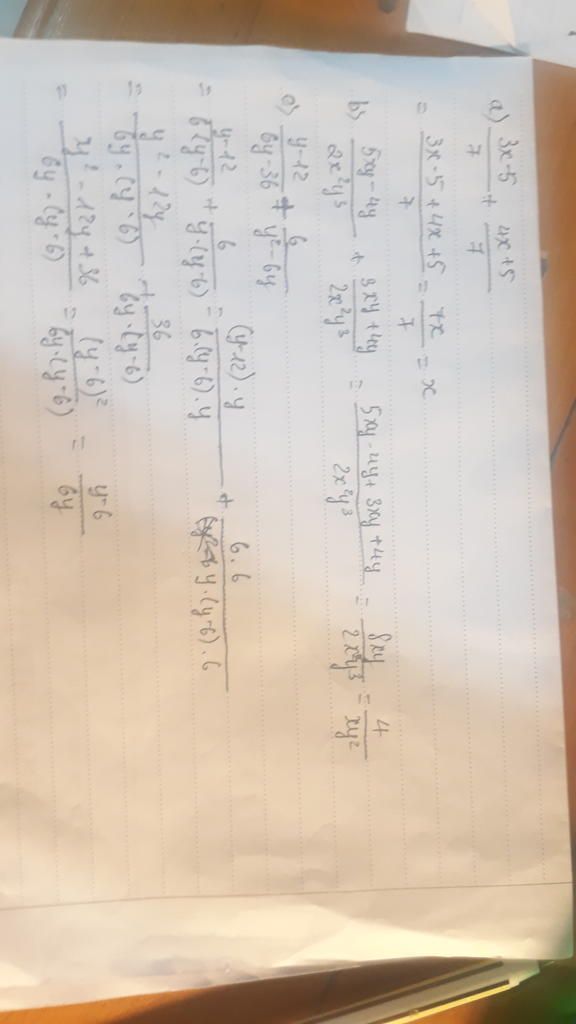 a) \frac{3x-5}{7} + \frac{4x+5}{7}
= \frac{3x-5+4x+5}{7} = \frac{7x}{7} = x
b) \frac{5xy-4y}{2x^2y^3} + \frac{3xy+4y}{2x^2y^3} = \frac{5xy-4y+3xy+4y}{2x^2y^3} = \frac{8xy}{2x^2y^3} = \frac{4}{xy^2}
c) \frac{y-12}{6y-36} + \frac{6}{y^2-6y}
= \frac{y-12}{6(y-6)} + \frac{6}{y.(y-6)} = \frac{(y-12).y}{6.(y-6).y} + \frac{6.6}{y.(y-6).6}
= \frac{y^2-12y}{6y.(y-6)} + \frac{36}{6y.(y-6)}
= \frac{y^2-12y+36}{6y.(y-6)} = \frac{(y-6)^2}{6y.(y-6)} = \frac{y-6}{6y}